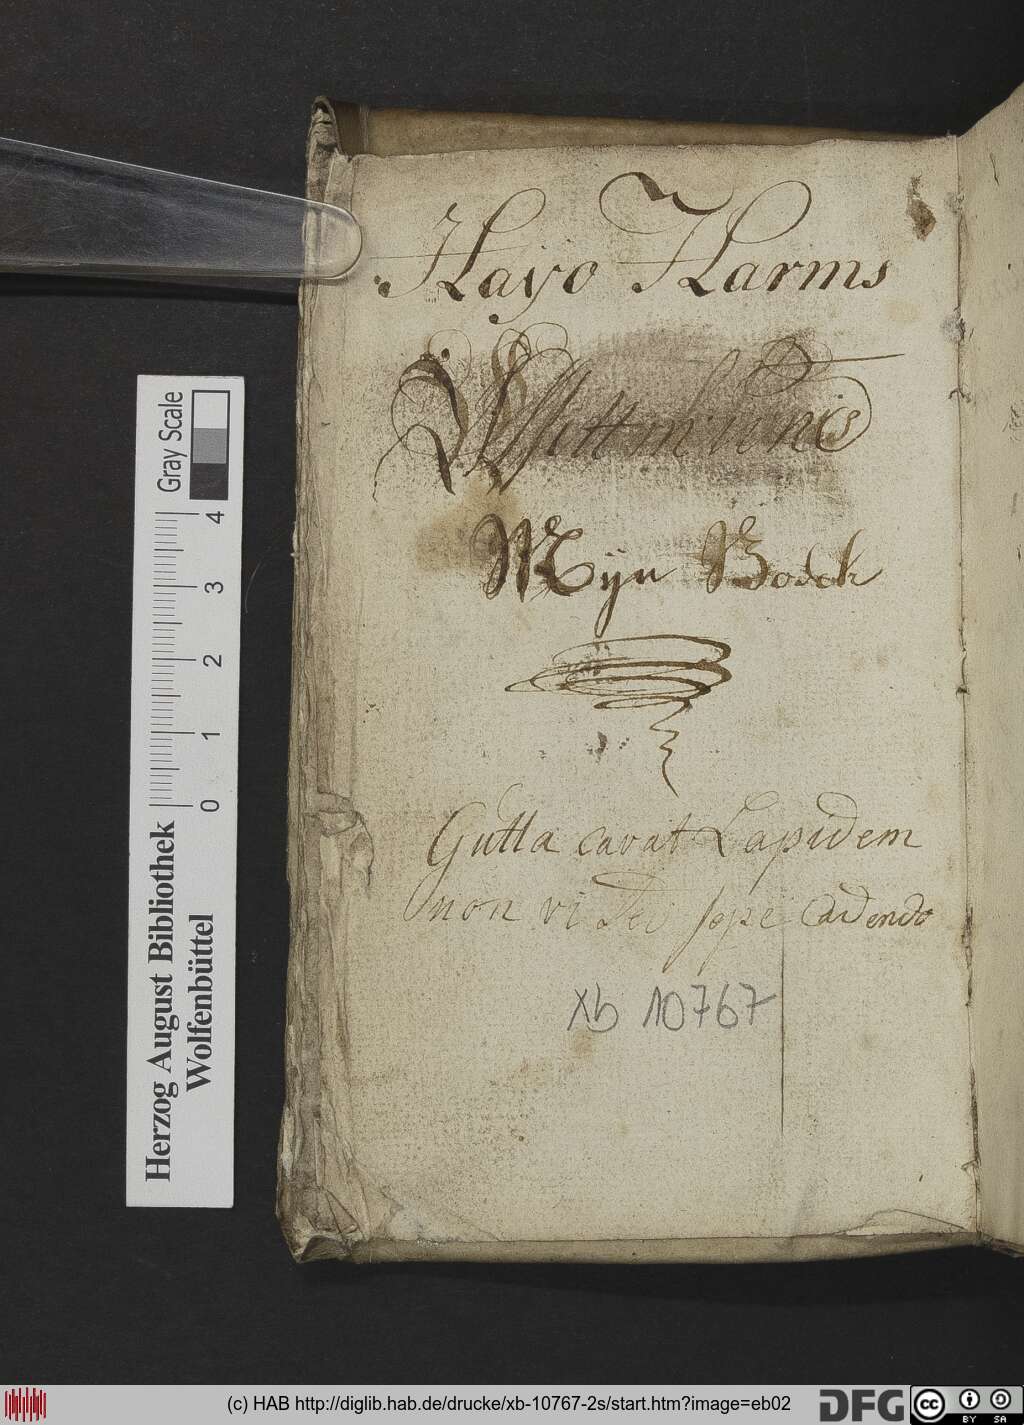 Hayo Harms
Mijn Boock
Gutta cavat Lapidem
non vi sed sepe Cadendo
xb 10767
Gray Scale
4
3
2
1
0
Herzog August Bibliothek
Wolfenbüttel
(c) HAB http://diglib.hab.de/drucke/xb-10767-2s/start.htm?image=eb02
DFG
cc
BY
SA